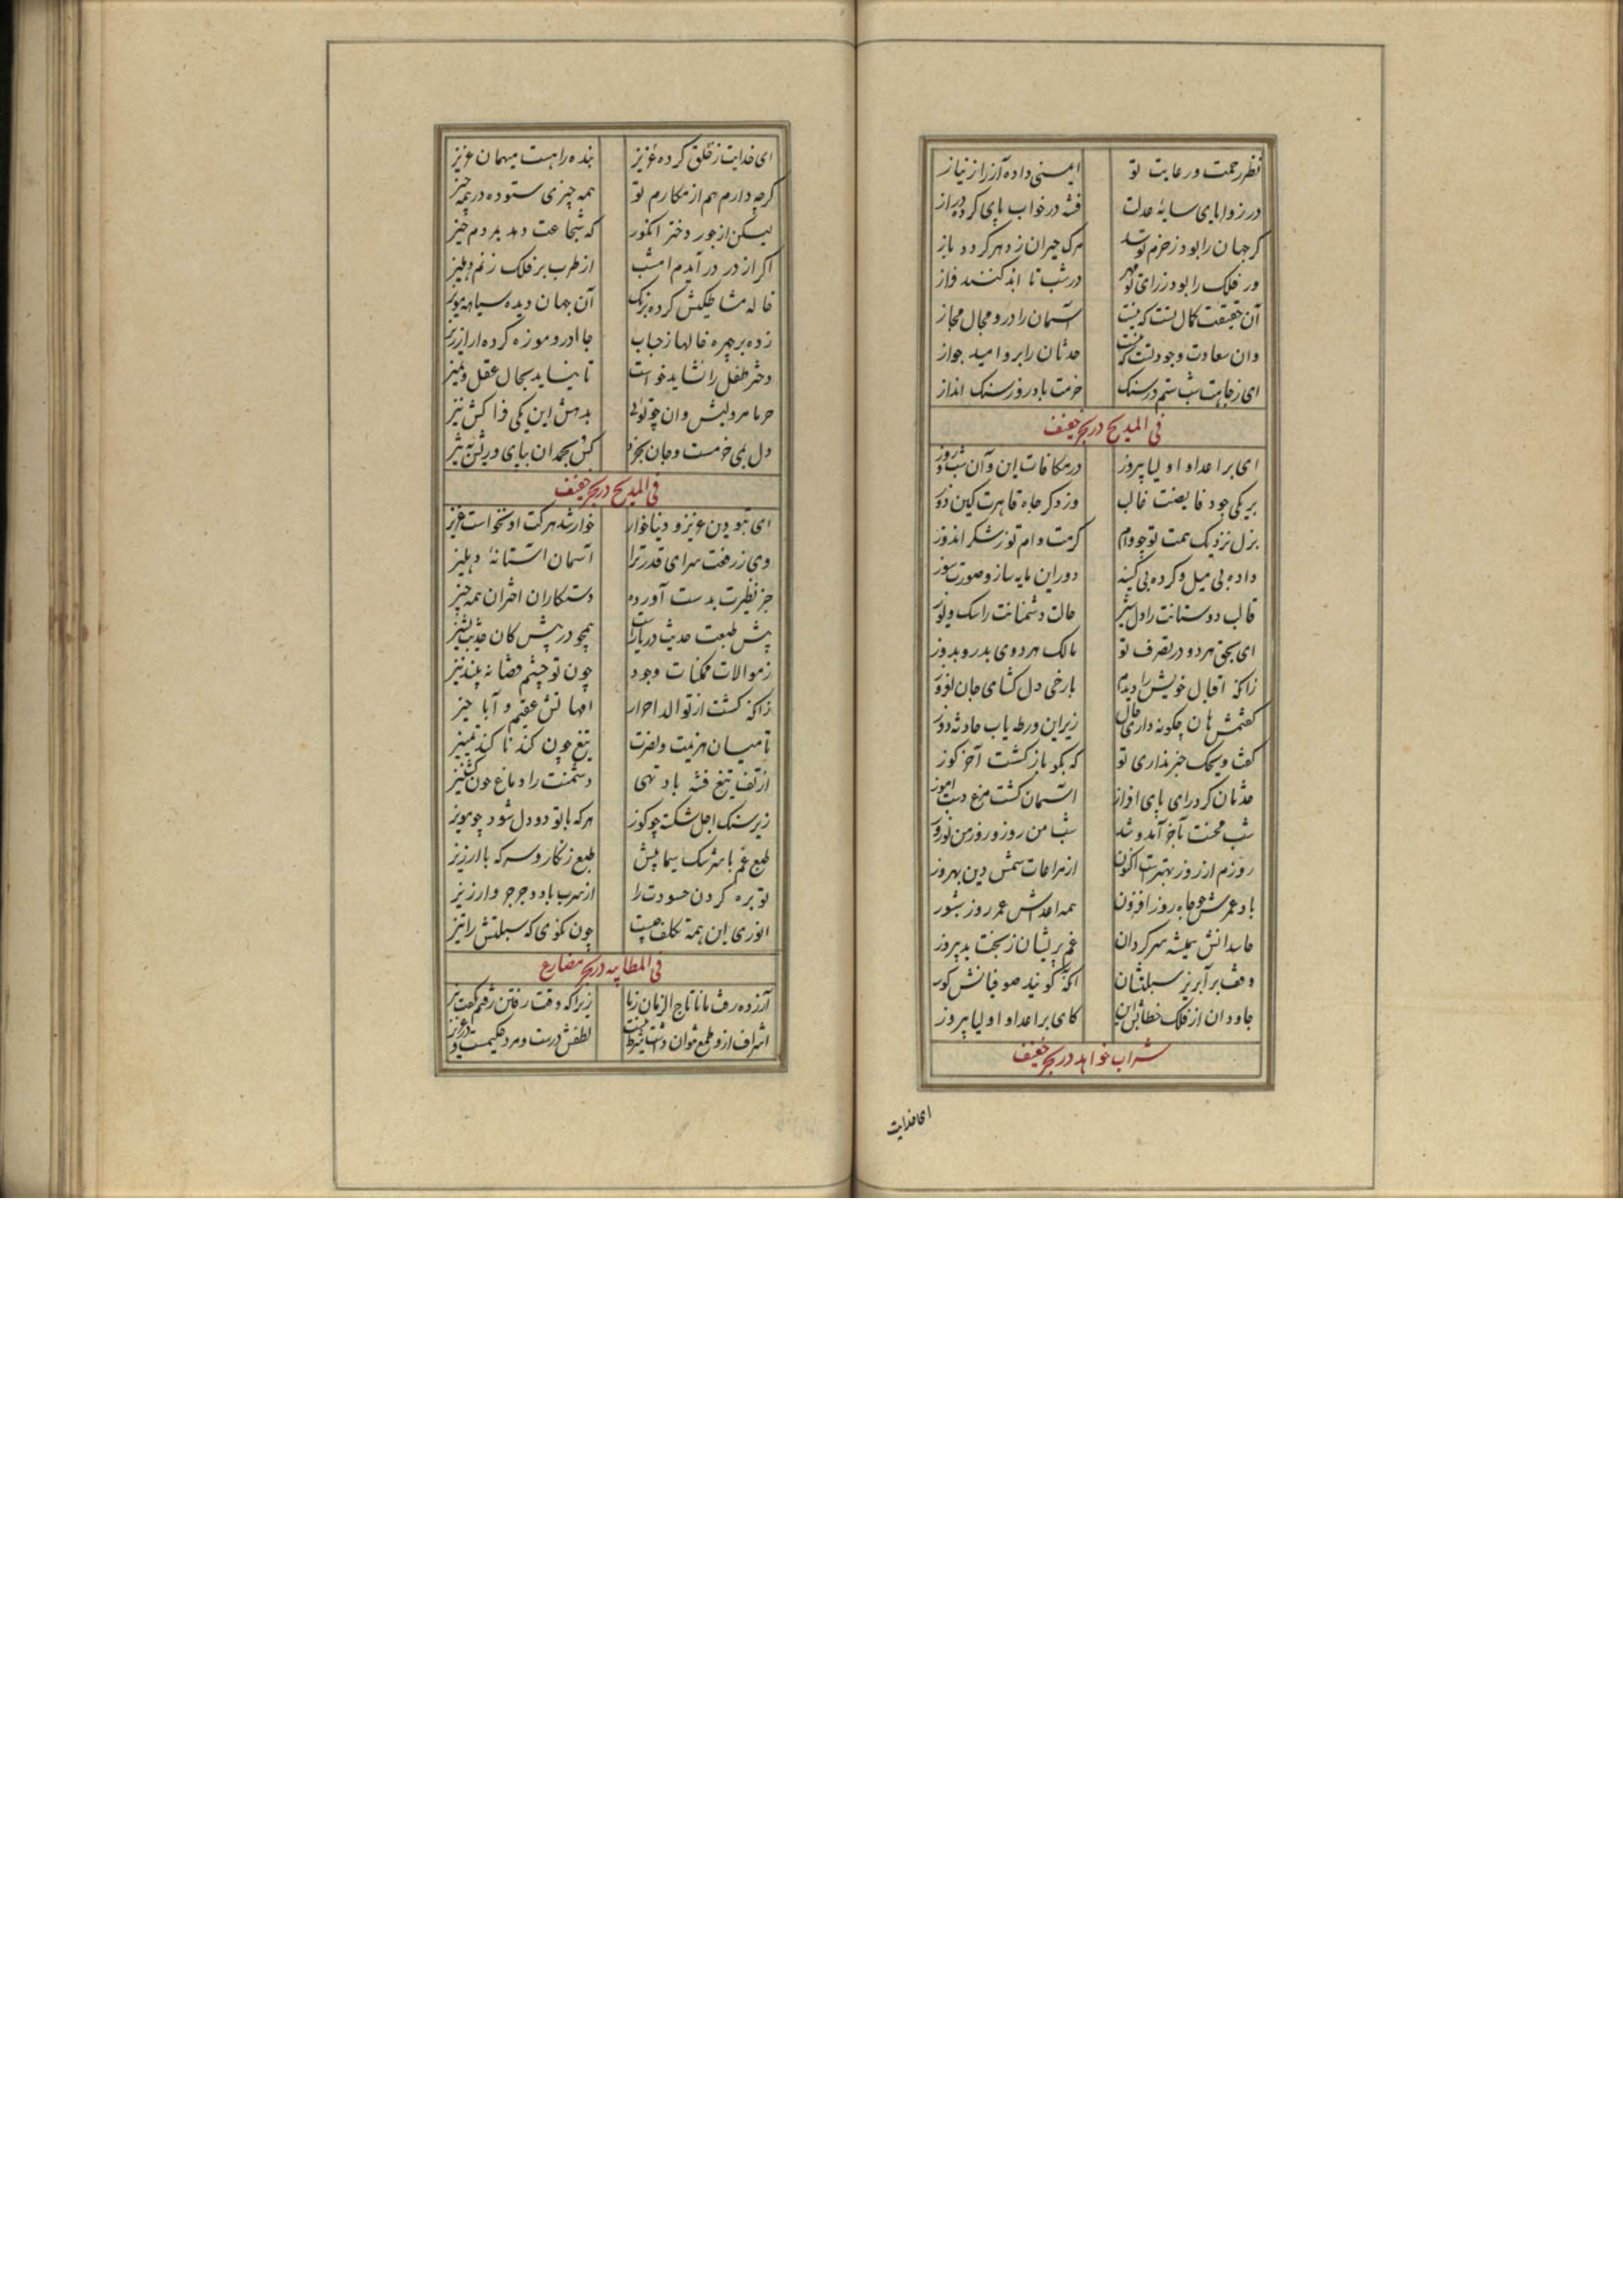 نظر رحمت و رعایت تو ایمنی داده آز را ز نیاز
در زوایای سایهٔ عدلت فتنه در خواب پای کرده دراز
گر جهان را بود ز حزم تو سد مرگ حیران ز دهر گردد باز
ور فلک را بود ز رای تو مهر در شب تا ابد کنند فراز
آن حقیقت کمال تست که نیست آسمان را درو مجال مجاز
وان سعادت وجود تست که نیست حدثان را برو امید جواز
ای ز جاهت شب ستم در سنگ خرمت باد روز سنگ انداز
فی المدیح در بحر خفیف
ای بر اعدا و اولیا پیروز در مکافات این و آن شب و روز
بر یکی جود فایضت غالب وز دگر جاه قاهرت کین توز
بزل نزدیک همت تو چو وام کرمت وام توز شکر اندوز
داده بی میل و کرده بی کینه دوران مایه ساز و صورت سوز
قالب دوستانت را دل شیر حالت دشمنانت را سگ و یوز
ای بحق هر دو در تصرف تو مالک هر دوی بدر و بدوز
زانکه اقبال خویش را دیدم با رخی دل گشای جان افروز
گفتمش هان چگونه داری حال زیر این ورطه یاب حادثه دوز
گفت ویحک خبر نداری تو که بکو باز گشت آخر گوز
حدثان کرد رای پای افراز آسمان گشت مرغ دست آموز
شب محنت بآخر آمد و شد شب من روز و روز من نوروز
روزم از روز بهترست اکنون از مراعات شمس دین بهروز
باد عمرش چو جاه روز افزون همه اعداش عمر روز بسوز
حاسدانش همیشه سرگردان غم پریشان ز بخت بد پیروز
وقف بر آبریز سبلتشان آنکه گویند صوفیانش گوز
جاودان از فلک خطابش این کای بر اعدا و اولیا پیروز
شراب خواهد در بحر خفیف
ای خدایت
ای خدایت ز خلق کرده عزیز بنده را هست میهمان عزیز
گرچه دارم هم از مکارم تو همه چیزی ستوده در همه چیز
لیکن از جور دختر انگور که شجاعت دهد بمردم حیز
اگر از در در آیدم امشب از طرب بر فلک زنم دهلیز
خاله مشاطگیش کرده برنگ آن جهان دیده سیاهه مویز
زده بر چهره خالها ز حباب چادر و موزه کرده از ارزیز
دختر طفل را نشاید خواست تا نیاید بحال عقل و تمیز
دل بمی خرمست و جان بخرد
فی المدیح در بحر خفیف
ای بتو دین عزیز و دنیا خوار خوار شد هر کت او نخواست عزیز
وی ز رفعت سرای قدر ترا آسمان آستانهٔ دهلیز
جز نظیرت بدست آورده دستکاران اختران همه چیز
پیش طبعت حدیث دریا راست همچو در پیش کان حدیث پشیز
ز موالات ممکنات وجود چون تو چشم قضا نه بیند نیز
زانکه گشت از توالد احرار امهاتش عقیم و آبا حیز
تا میان هزیمت و نصرت تیغ چون گندنا کند تمییز
از تف تیغ فتنه باد تهی دشمنت را دماغ چون گشنیز
زیر سنگ اجل شکسته چو گوز هر که با تو دو دل شود چو مویز
طبع غم با سرشک سیماییش طبع زنگار و سرکه با ارزیز
توبره کردن حسودت را از سرب باد و جرجر و ارزیز
انوری این همه تکلف چیست چون نگوی که سبلتش را تیز
فی المطایبه در بحر مضارع
آزرده رفت مانا تاج الزمان ز ما زیرا که وقت رفتن رفتم نگفت نیز